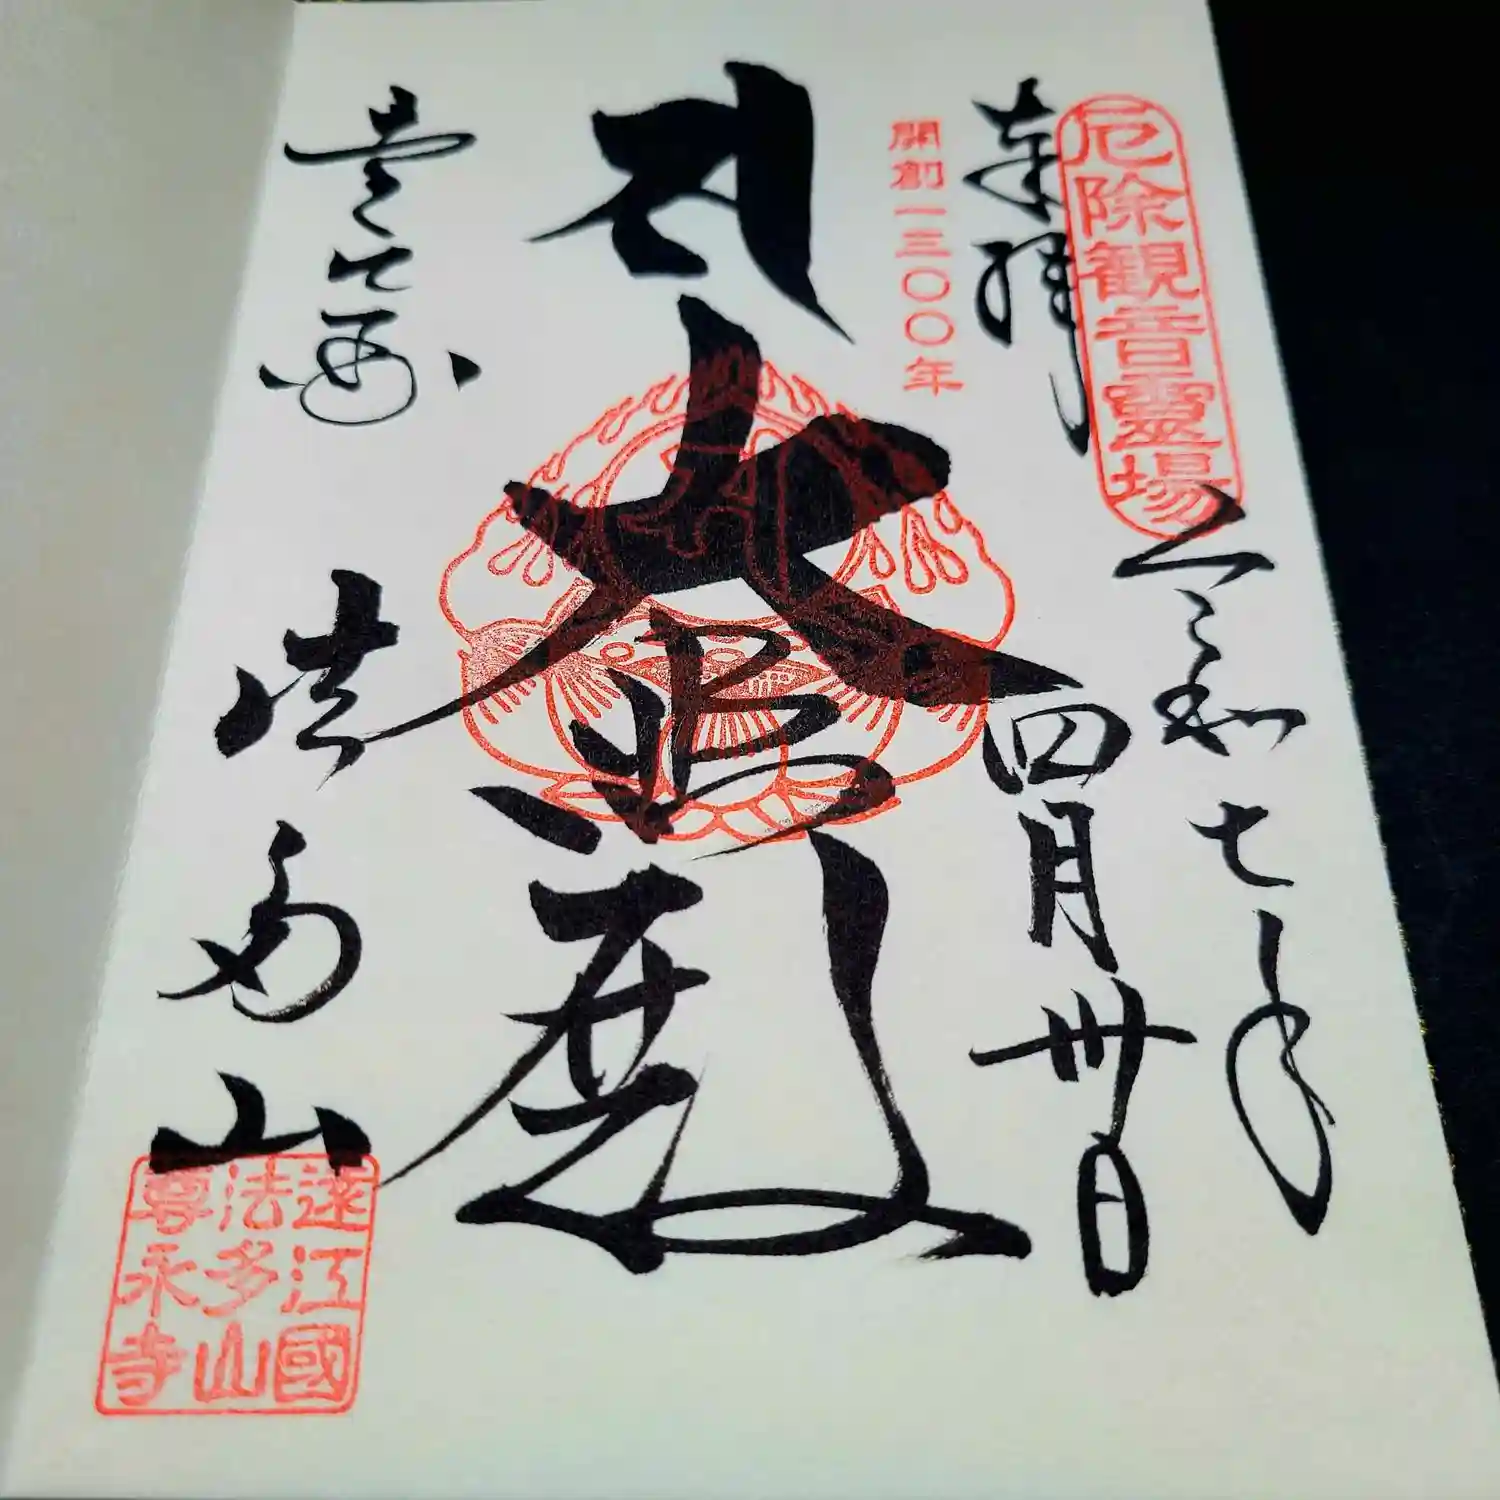 厄除観音靈場
奉拝
令和七年
四月卅日
開創一三〇〇年
大悲殿
法多山
遠江國
法多山
尊永寺